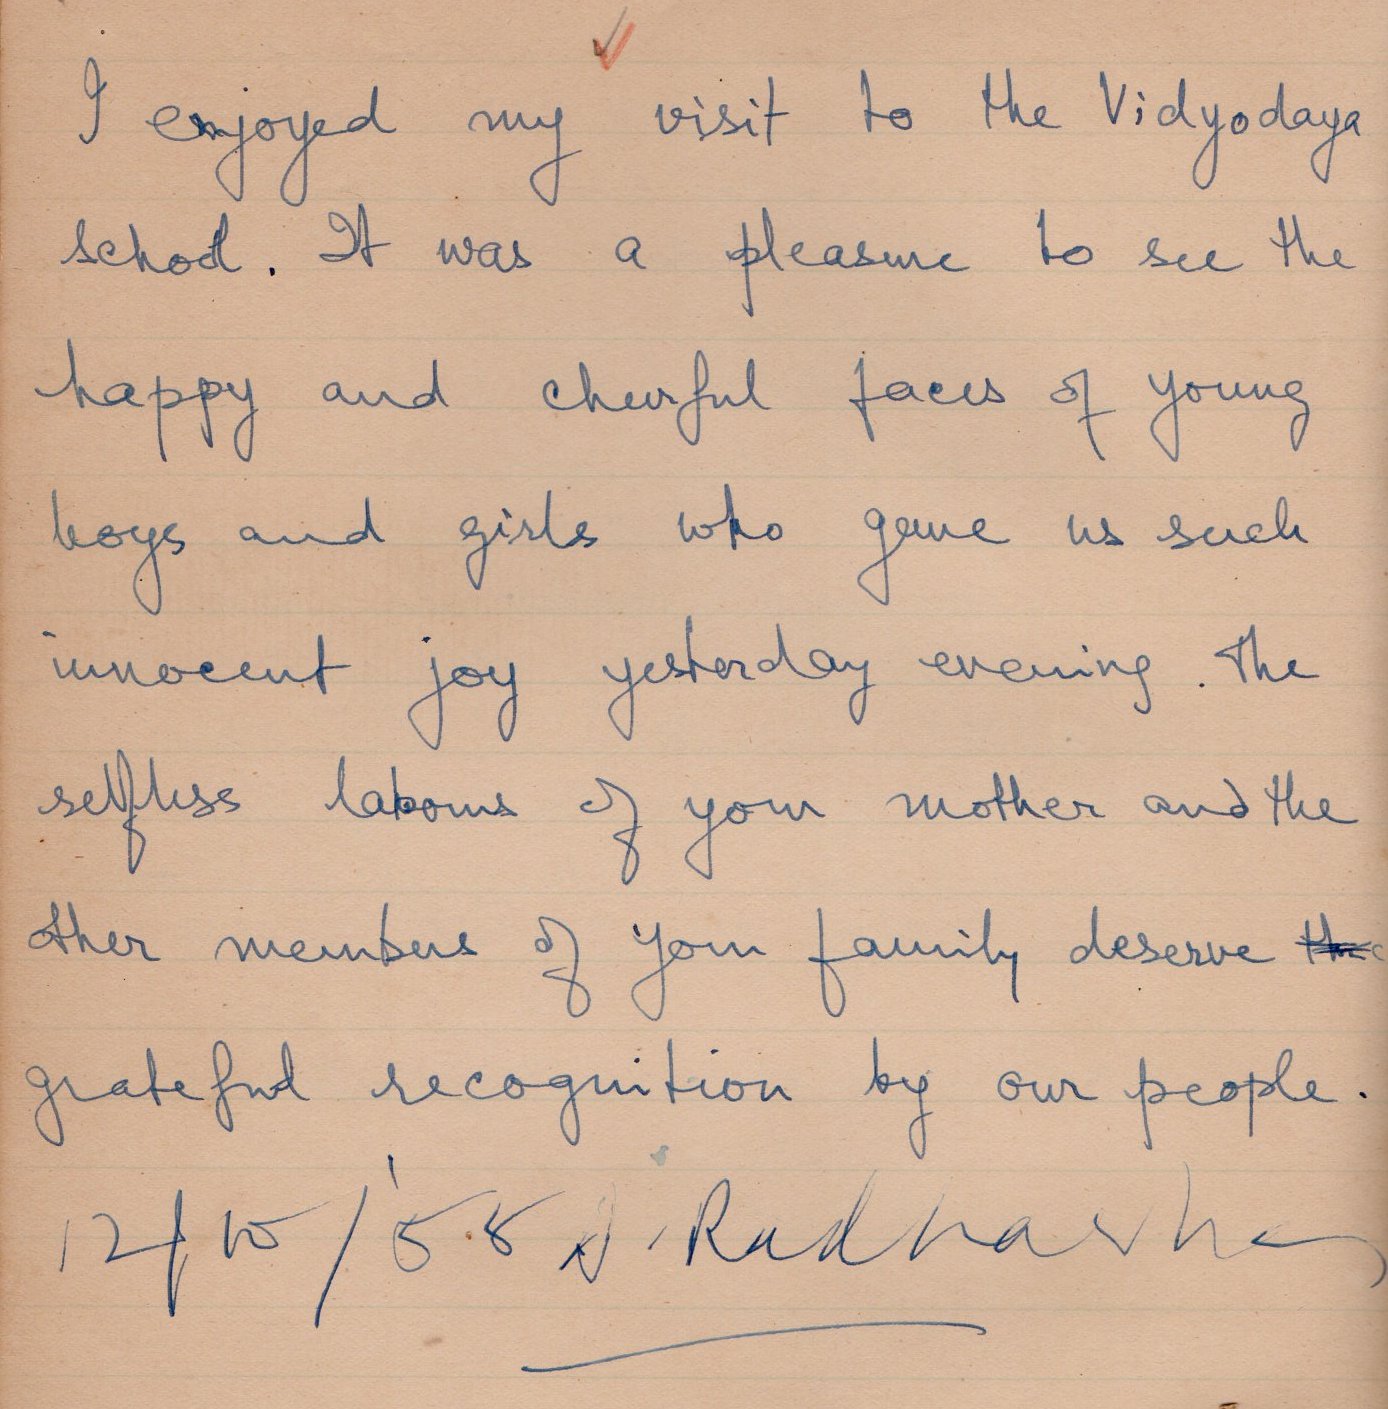 I enjoyed my visit to the Vidyodaya
school. It was a pleasure to see the
happy and cheerful faces of young
boys and girls who gave us such
innocent joy yesterday evening. The
selfless labours of your mother and the
other members of your family deserve the
grateful recognition by our people.
12/10/'58